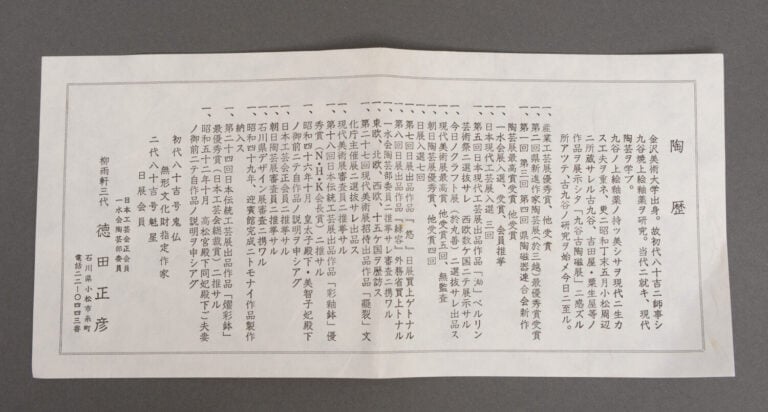 陶歴
金沢美術大学出身。故初代八十吉ニ師事シ
九谷焼上絵釉薬ヲ研究。当代ニ就キ、現代
陶芸ヲ学ブ。
九谷ノ上絵釉薬ノ持ツ美シサヲ現代ニ生カ
ス工夫ヲ重ネ、更ニ昭和丁未五月小松周辺
ニ所蔵サレル古九谷、吉田屋・粟生屋等ノ
作品ヲ展示シタ「九谷古陶磁展」ニ感ズル
所アッテ、古九谷ノ研究ヲ始メ今日ニ至ル。
一、産業工芸展優秀賞、他受賞
一、第二回県新進作家陶芸展(於三越)最優秀賞受賞
一、第一回 第三回 第四回 県陶磁器連合会新作
陶芸展最高賞受賞、他受賞
一、一水会展入選、受賞、会員推挙
一、日本現代工芸展入選、三回
一、第五回日本現代工芸展出品作品「㳒」ベルリン
芸術祭ニ選抜サレ 西欧数ケ国ニテ展示サル
一、今日ノクラフト展(於丸善)ニ選抜サレ出品ス
一、現代美術展最高賞 他受賞五回、無監査
一、朝日陶芸展優秀賞、他受賞四回
一、日展入選七回
一、第七回日展出品作品「悠」日展買上ゲトナル
一、第八回日展出品作品「緑容」外務省買上トナル
一、一水会陶芸部委員ニ推挙サレ審査ニ携ワル
一、東欧、北欧、西欧、十五ケ国ヲ歴訪ス。
一、第二十七回現代美術展招待出品作品「蘶裂」文
化庁主催展ニ選抜サレ出品ス
一、現代美術展審査員ニ推挙サル
一、第十八回日本伝統工芸展出品作品「彩釉鉢」優
秀賞(N・H・K会長賞)ニ推サル
一、昭和四十六年十月 皇太子殿下・美智子妃殿下
ノ御前ニテ自作品ノ説明ヲ申シアグ
一、日本工芸会正会員ニ推挙サル
一、朝日陶芸展審査員ニ推挙サル
一、石川県デザイン展審査ニ携ワル
一、昭和四十九年、迎賓館完成ニトモナイ作品製作
納入ス
一、第二十四回日本伝統工芸展出品作品「燿彩鉢」
最優秀賞(日本工芸会総裁賞)ニ推サル
一、昭和五十二年十月 高松宮殿下同妃殿下ご夫妻
ノ御前ニテ自作品ノ説明ヲ申シアグ
初代八十吉号鬼仏
無形文化財指定作家
二代八十吉号魁星
日展会員
柳雨軒三代 徳田正彦
日本工芸会正会員
一水会陶芸部委員
石川県小松市糸町
電話二二-〇四四三番